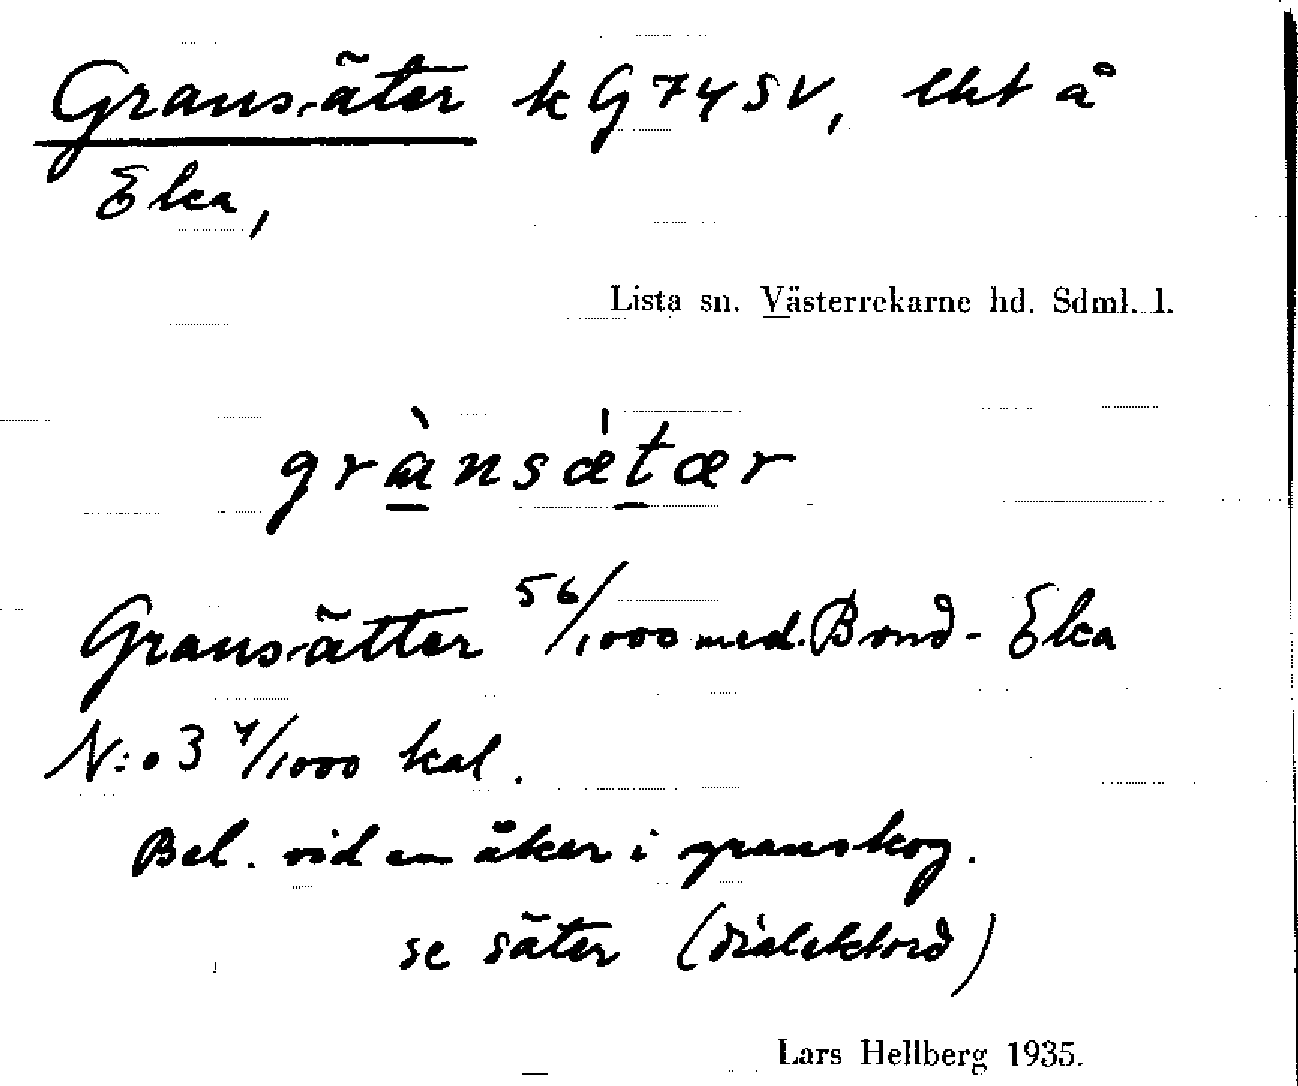 Gransäter kG74SV, lht å
Elca,
Lista sn. Västerrekarne hd. Sdml. l.
grànsǽtær
Gransätter 56/1000 med. Bond-Elca
N:o 3 4/1000 kal.
Bel. vid en åker i granskog.
se säter (dialektord)
Lars Hellberg 1935.